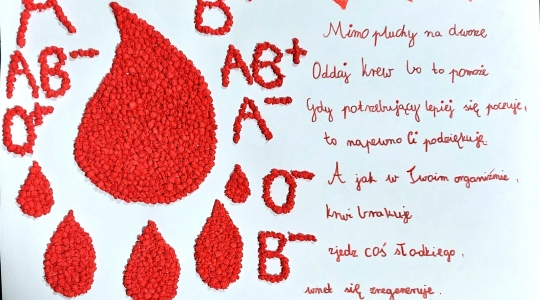 A
B
AB-
AB+
O+
A-
O-
B-
Mimo pluchy na dworze
Oddaj krew bo to pomoże
Gdy potrzebujący lepiej się poczuje,
to napewno Ci podziękuję.
A jak w Twoim organiźmie,
krwi brakuje
zjedz coś słodkiego,
wnet się zregeneruje.